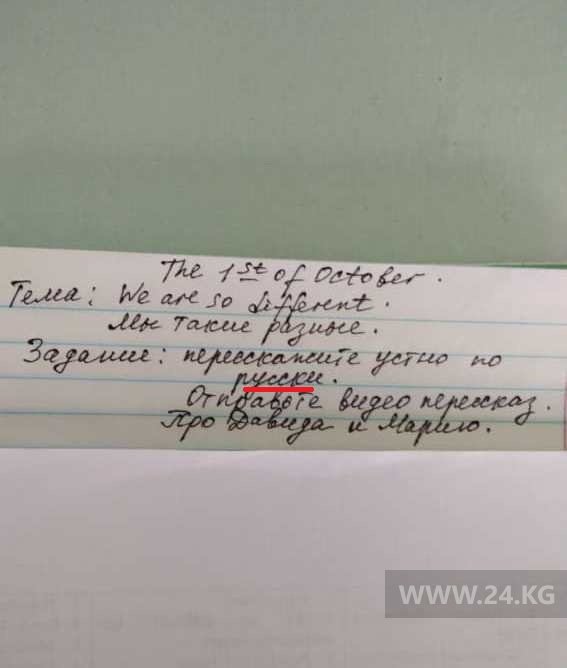 The 1st of October.
Тема: We are so different.
Мы такие разные.
Задание: пересскажите устно по
русски.
Отправьте видео перессказ.
Про Давида и Марию.
WWW.24.KG